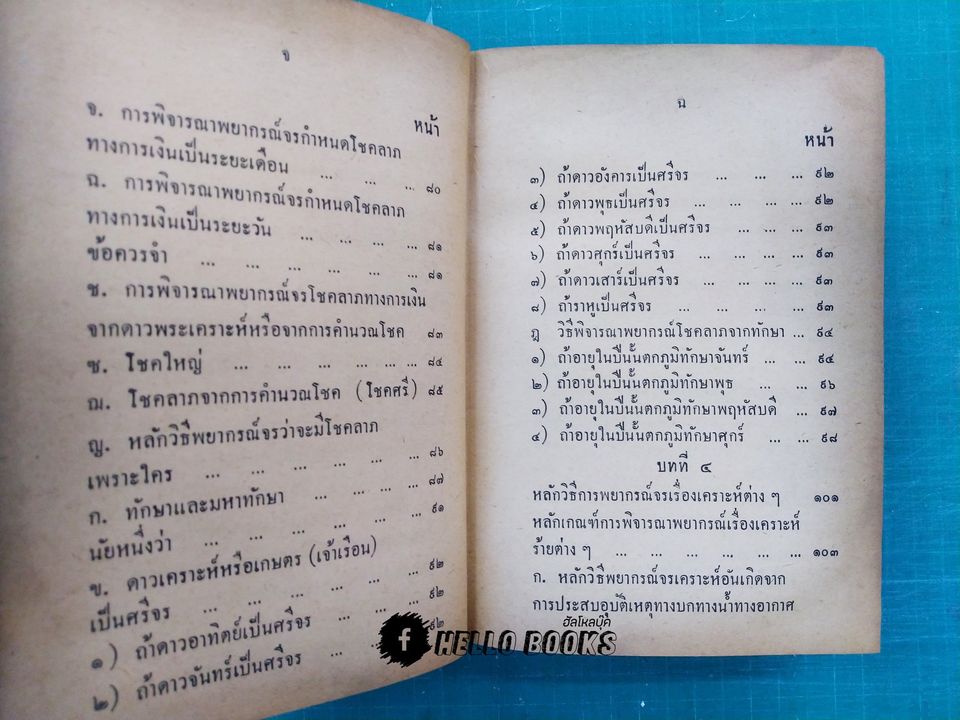 จ
หน้า
จ. การพิจารณาพยากรณ์จรกำหนดโชคลาภ
ทางการเงินเป็นระยะเดือน ... ... ... ๘๐
ฉ. การพิจารณาพยากรณ์จรกำหนดโชคลาภ
ทางการเงินเป็นระยะวัน ... ... ... ... ๘๑
ข้อควรจำ ... ... ... ... ... ... ๘๑
ช. การพิจารณาพยากรณ์จรโชคลาภทางการเงิน
จากดาวพระเคราะห์หรือจากการคำนวณโชค ๘๓
ซ. โชคใหญ่ ... ... ... ... ... ... ๘๔
ฌ. โชคลาภจากการคำนวณโชค (โชคศรี) ๘๕
ญ. หลักวิธีพยากรณ์จรว่าจะมีโชคลาภ
เพราะใคร ... ... ... ... ... ... ๘๖
ก. ทักษาและมหาทักษา ... ... ... ... ๘๗
นัยหนึ่งว่า ... ... ... ... ... ... ๙๑
ข. ดาวเคราะห์หรือเกษตร (เจ้าเรือน)
เป็นศรีจร ... ... ... ... ... ... ๙๒
๑) ถ้าดาวอาทิตย์เป็นศรีจร ... ... ... ๙๒
๒) ถ้าดาวจันทร์เป็นศรีจร ... ... ๙๒
ฉ
หน้า
๓) ถ้าดาวอังคารเป็นศรีจร ... ... ... ๙๒
๔) ถ้าดาวพุธเป็นศรีจร ... ... ... ... ๙๒
๕) ถ้าดาวพฤหัสบดีเป็นศรีจร ... ... ... ๙๓
๖) ถ้าดาวศุกร์เป็นศรีจร ... ... ... ... ๙๓
๗) ถ้าดาวเสาร์เป็นศรีจร ... ... ... ... ๙๓
๘) ถ้าราหูเป็นศรีจร ... ... ... ... ๙๓
ฎ วิธีพิจารณาพยากรณ์โชคลาภจากทักษา ... ๙๔
๑) ถ้าอายุในปีนั้นตกภูมิทักษาจันทร์ ... ... ๙๔
๒) ถ้าอายุในปีนั้นตกภูมิทักษาพุธ ... ... ๙๖
๓) ถ้าอายุในปีนั้นตกภูมิทักษาพฤหัสบดี ... ๙๗
๔) ถ้าอายุในปีนั้นตกภูมิทักษาศุกร์ ... ... ๙๘
บทที่ ๔
หลักวิธีการพยากรณ์จรเรื่องเคราะห์ต่าง ๆ ๑๐๑
หลักเกณฑ์การพิจารณาพยากรณ์เรื่องเคราะห์
ร้ายต่าง ๆ ... ... ... ... ... ... ๑๐๓
ก. หลักวิธีพยากรณ์จรเคราะห์อันเกิดจาก
การประสบอุบัติเหตุทางบกทางน้ำทางอากาศ
ฮัลโหลบุ๊ค
f HELLO BOOKS